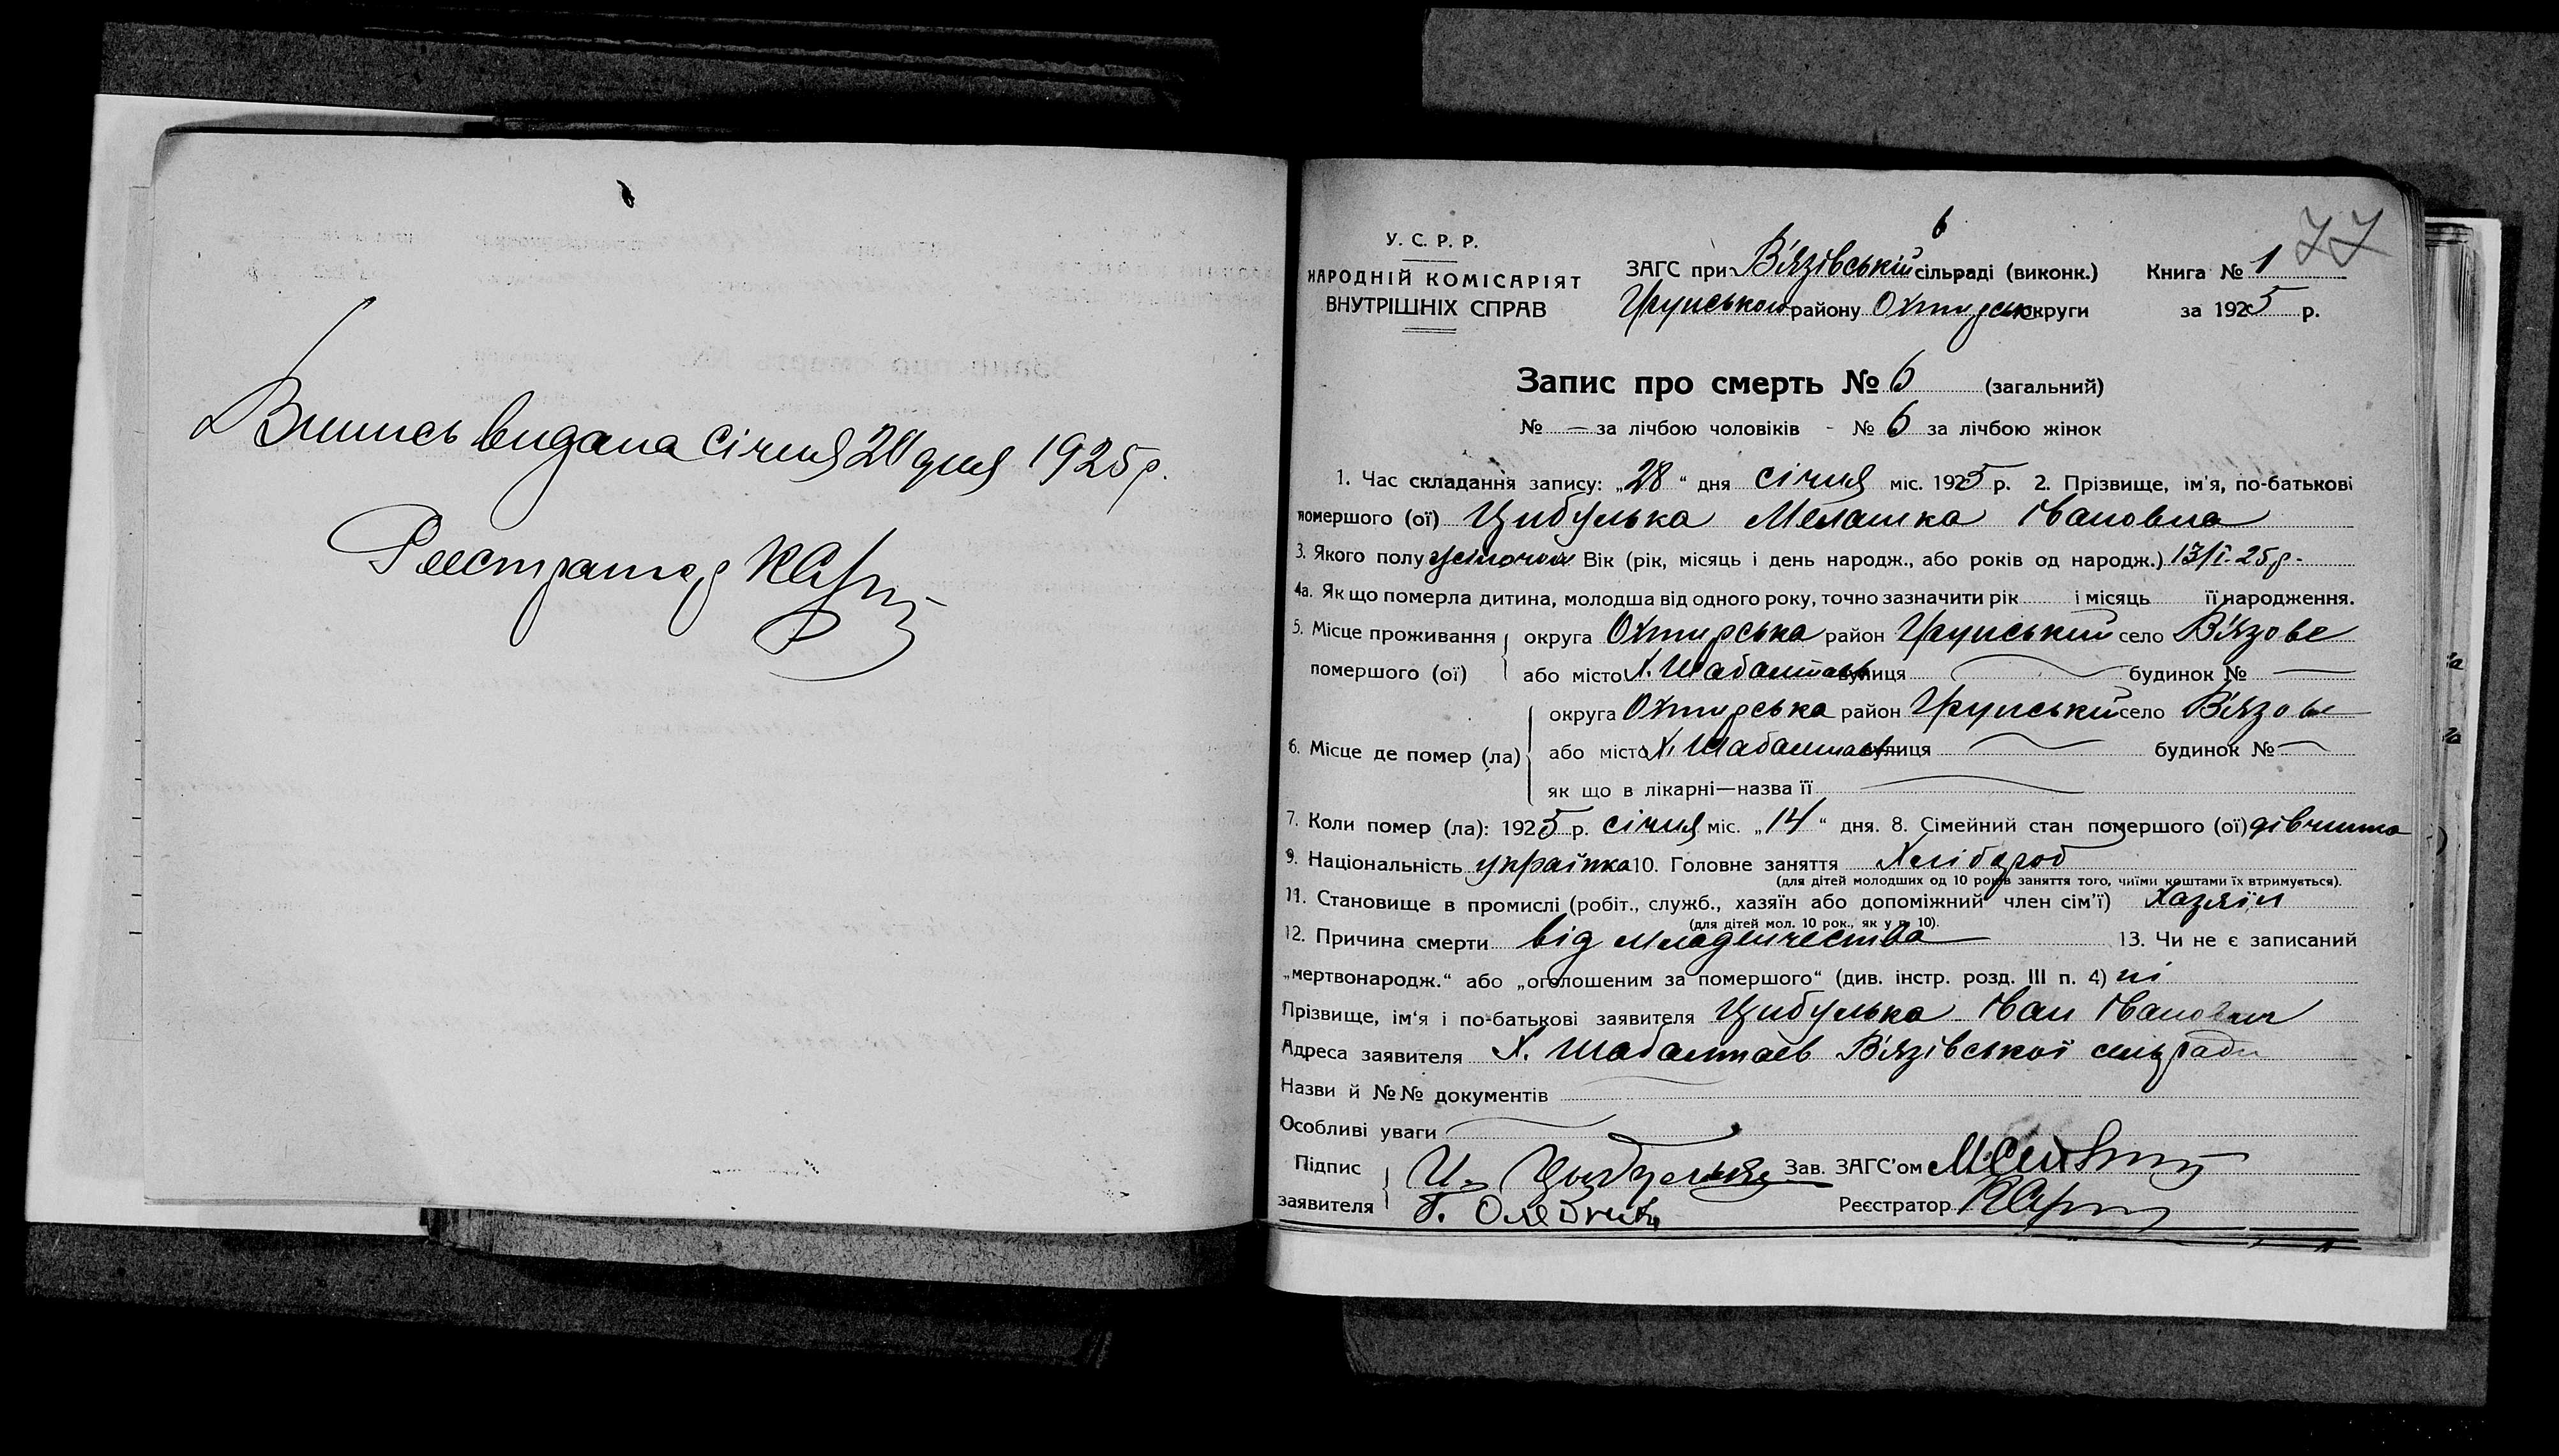 Випись видана січня 28 дня 1925 р.
Реєстратор
6
77
У. С. Р. Р.
НАРОДНІЙ КОМІСАРІЯТ
ВНУТРІШНІХ СПРАВ
ЗАГС при В'язівській сільраді (виконк.)
Грунського району Охтирськ округи
Книга № 1
за 1925 р.
Запис про смерть № 6 (загальний)
№ — за лічбою чоловіків - № 6 за лічбою жінок
1. Час складання запису: „28“ дня січня міс. 1925 р. 2. Прізвище, ім'я, по-батькові
помершого (ої) Цибулька Мелашка Івановна
3. Якого полу жіночої Вік (рік, місяць і день народж., або років од народж.) 13/I-25 р-
4а. Як що померла дитина, молодша від одного року, точно зазначити рік і місяць її народження.
5. Місце проживання помершого (ої) округа Охтирська район Грунський село В'язове
або місто Х. Шабалтаєв вулиця — будинок № —
6. Місце де помер (ла) округа Охтирська район Грунський село В'язове
або місто Х. Шабалтаєв вулиця — будинок № —
як що в лікарні—назва її —
7. Коли помер (ла): 1925 р. січня міс. „14“ дня. 8. Сімейний стан помершого (ої) дівчина
9. Національність українка 10. Головне заняття Хлібороб
(для дітей молодших од 10 років заняття того, чиїми коштами їх втримується).
11. Становище в промислі (робіт., служб., хазяїн або допоміжний член сім'ї) Хазяїн
(для дітей мол. 10 рок., як у п. 10).
12. Причина смерти від младенчества 13. Чи не є записаний
„мертвонародж.“ або „оголошеним за помершого“ (див. інстр. розд. III п. 4) ні
Прізвище, ім'я і по-батькові заявителя Цибулька Іван Іванович
Адреса заявителя Х. Шабалтаєв В'язівської сільради
Назви й №№ документів
Особливі уваги —
Підпис заявителя И. Цыбулька
Зав. ЗАГС'ом
Реєстратор